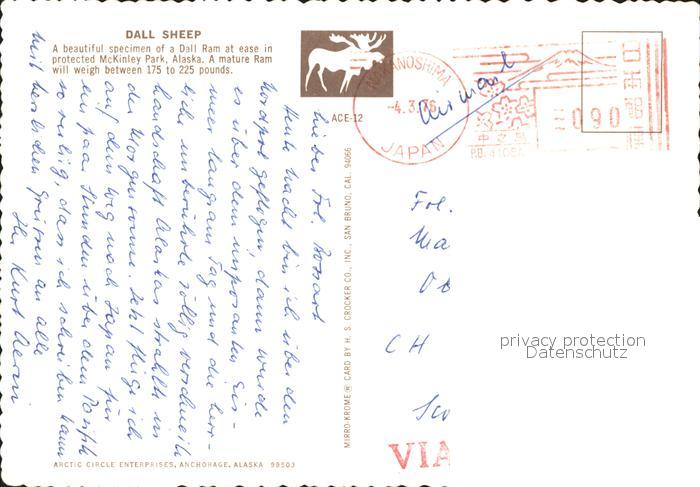 DALL SHEEP
A beautiful specimen of a Dall Ram at ease in
protected McKinley Park, Alaska. A mature Ram
will weigh between 175 to 225 pounds.
ACE-12
Liebes Frl. Bossart
Heute Nacht bin ich über den
Nordpol geflogen, dann wurde
es über dem imposanten Eis-
meer langsam Tag und die herr-
liche unberührte völlig verschneite
Landschaft Alaskas strahlte in
der Morgensonne. Jetzt fliege ich
auf dem Weg nach Japan für
ein paar Stunden über den Pazifik
so ruhig, dass ich schreiben kann
Mit herzlichen Grüssen an alle
Ihr Kurt
ARCTIC CIRCLE ENTERPRISES, ANCHORAGE, ALASKA 99503
MIRRO-KROME® CARD BY H. S. CROCKER CO., INC., SAN BRUNO, CAL. 94066
NAKANOSHIMA
-4.3.76
JAPAN
090
Air mail
Frl.
CH
VIA
privacy protection
Datenschutz